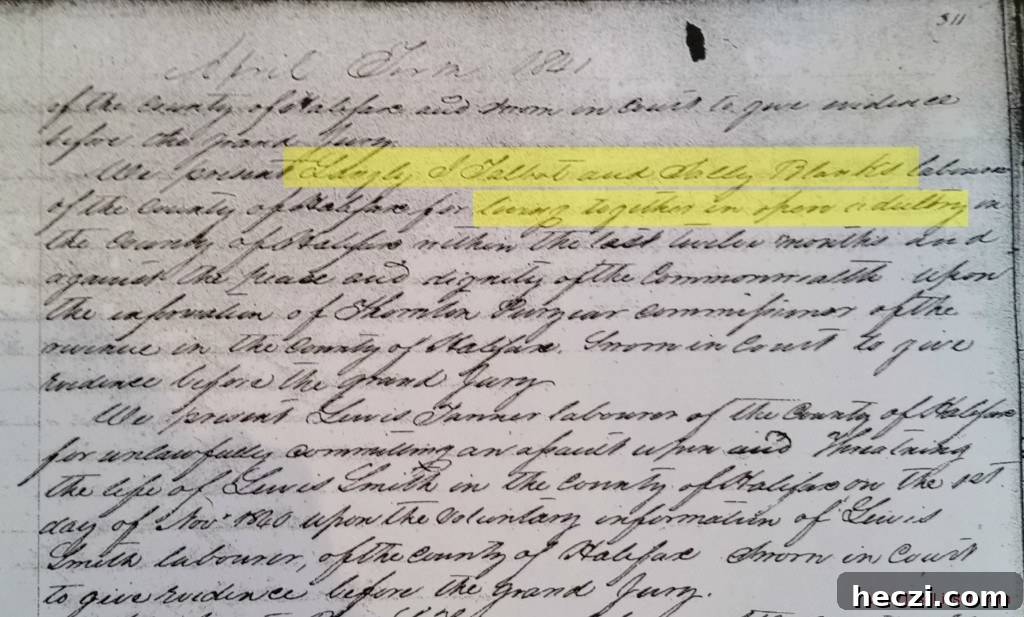 311
April Term 1841
of the County of Halifax and sworn in Court to give evidence
before the grand Jury.
We present T Talbot and Sally Blanks labourers
of the County of Halifax for living together in open adultery in
the County of Halifax within the last twelve months and
against the peace and dignity of the Commonwealth upon
the information of Thornton Puryear commissioner of the
revenue in the County of Halifax. Sworn in Court to give
evidence before the grand Jury
We present Lewis Tanner labourer of the County of Halifax
for unlawfully committing an assault upon and Threatning
the life of Lewis Smith in the County of Halifax on the 1st
day of Novr 1840 upon the voluntary information of Lewis
Smith labourer, of the county of Halifax Sworn in Court
to give evidence before the grand Jury.
heczi.com